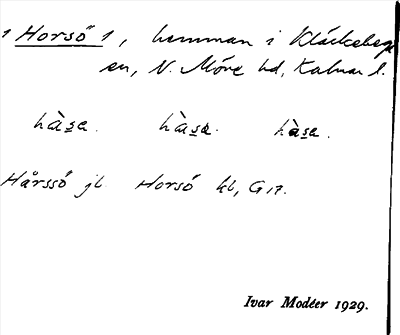 1 Horsö 1, hemman i Kläckeberga
sn, N. Möre hd, Kalmar l.
hàse. hàse. hàse.
Hårssö jb. Horsö kb, G 17.
Ivar Modéer 1929.